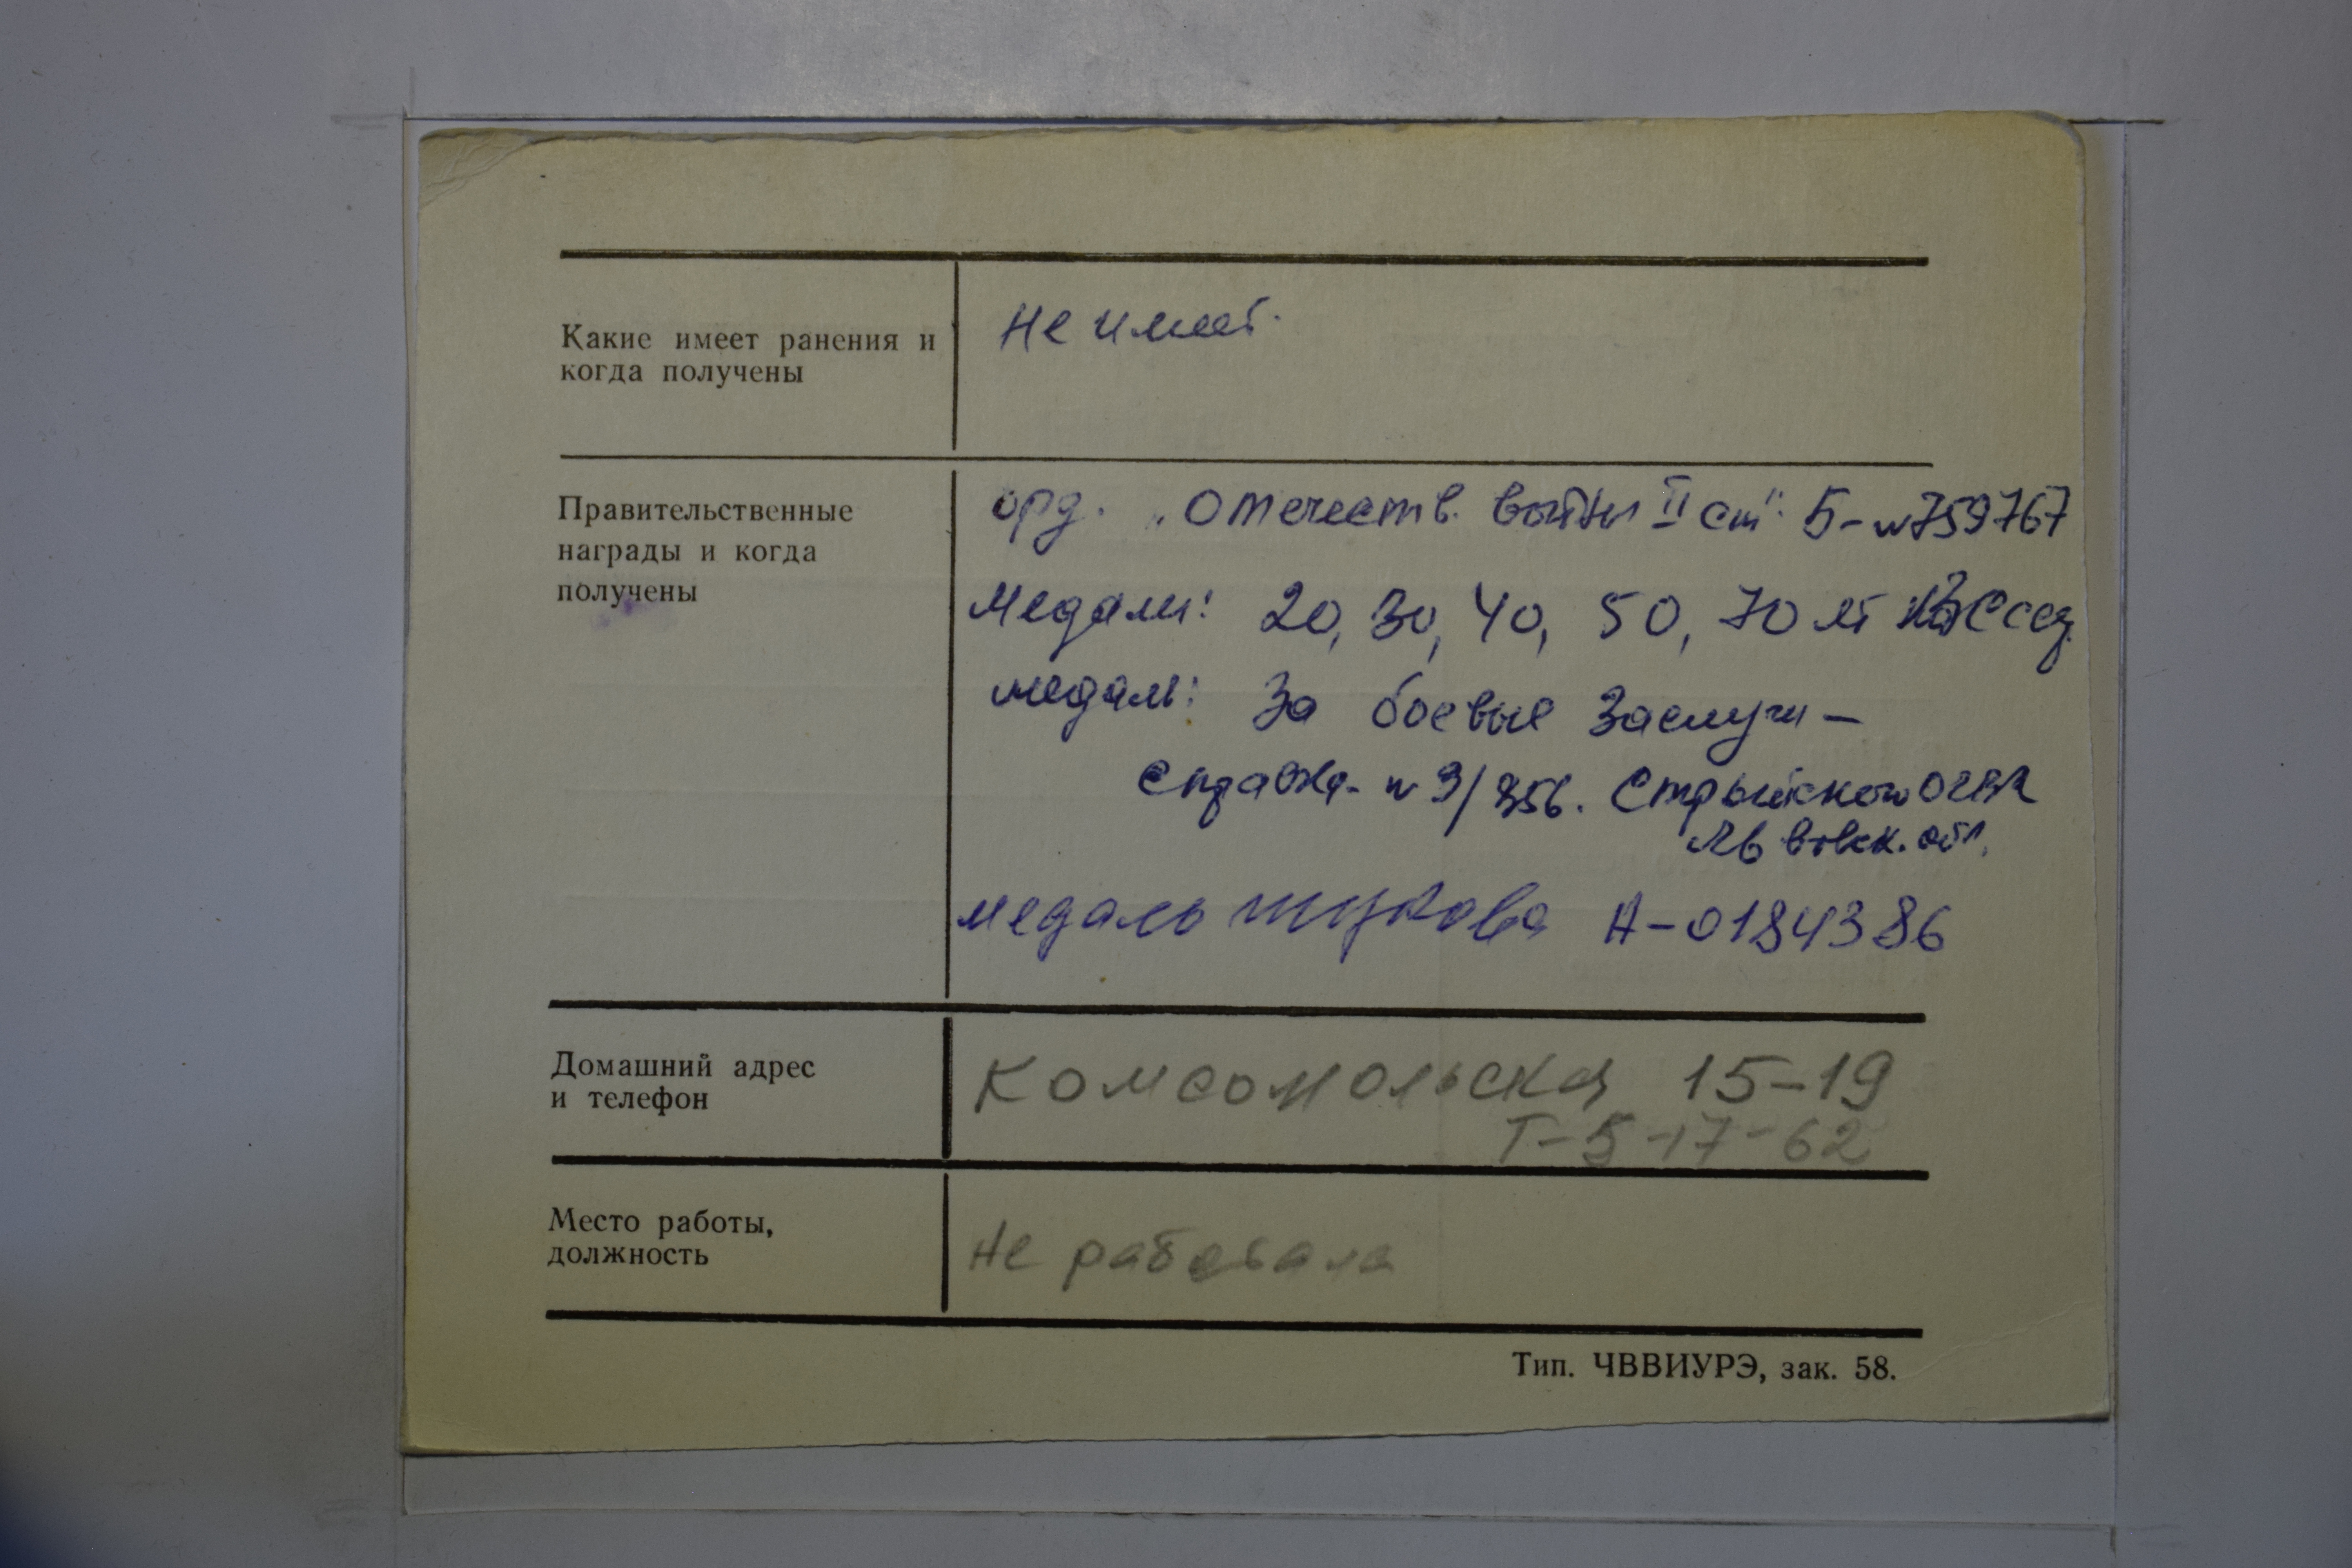 Какие имеет ранения и
когда получены
Не имеет.
Правительственные
награды и когда
получены
орд. „Отечеств. войны II ст" Б-№759767
Медали: 20, 30, 40, 50, 70 лет
медаль: За боевые заслуги –
Справка № 3/356. Стрыйского ОГВК
Львовск. обл.
медаль Жукова А-0184386
Домашний адрес
и телефон
Комсомольская 15-19
Т-5-17-62
Место работы,
должность
Не работала
Тип. ЧВВИУРЭ, зак. 58.